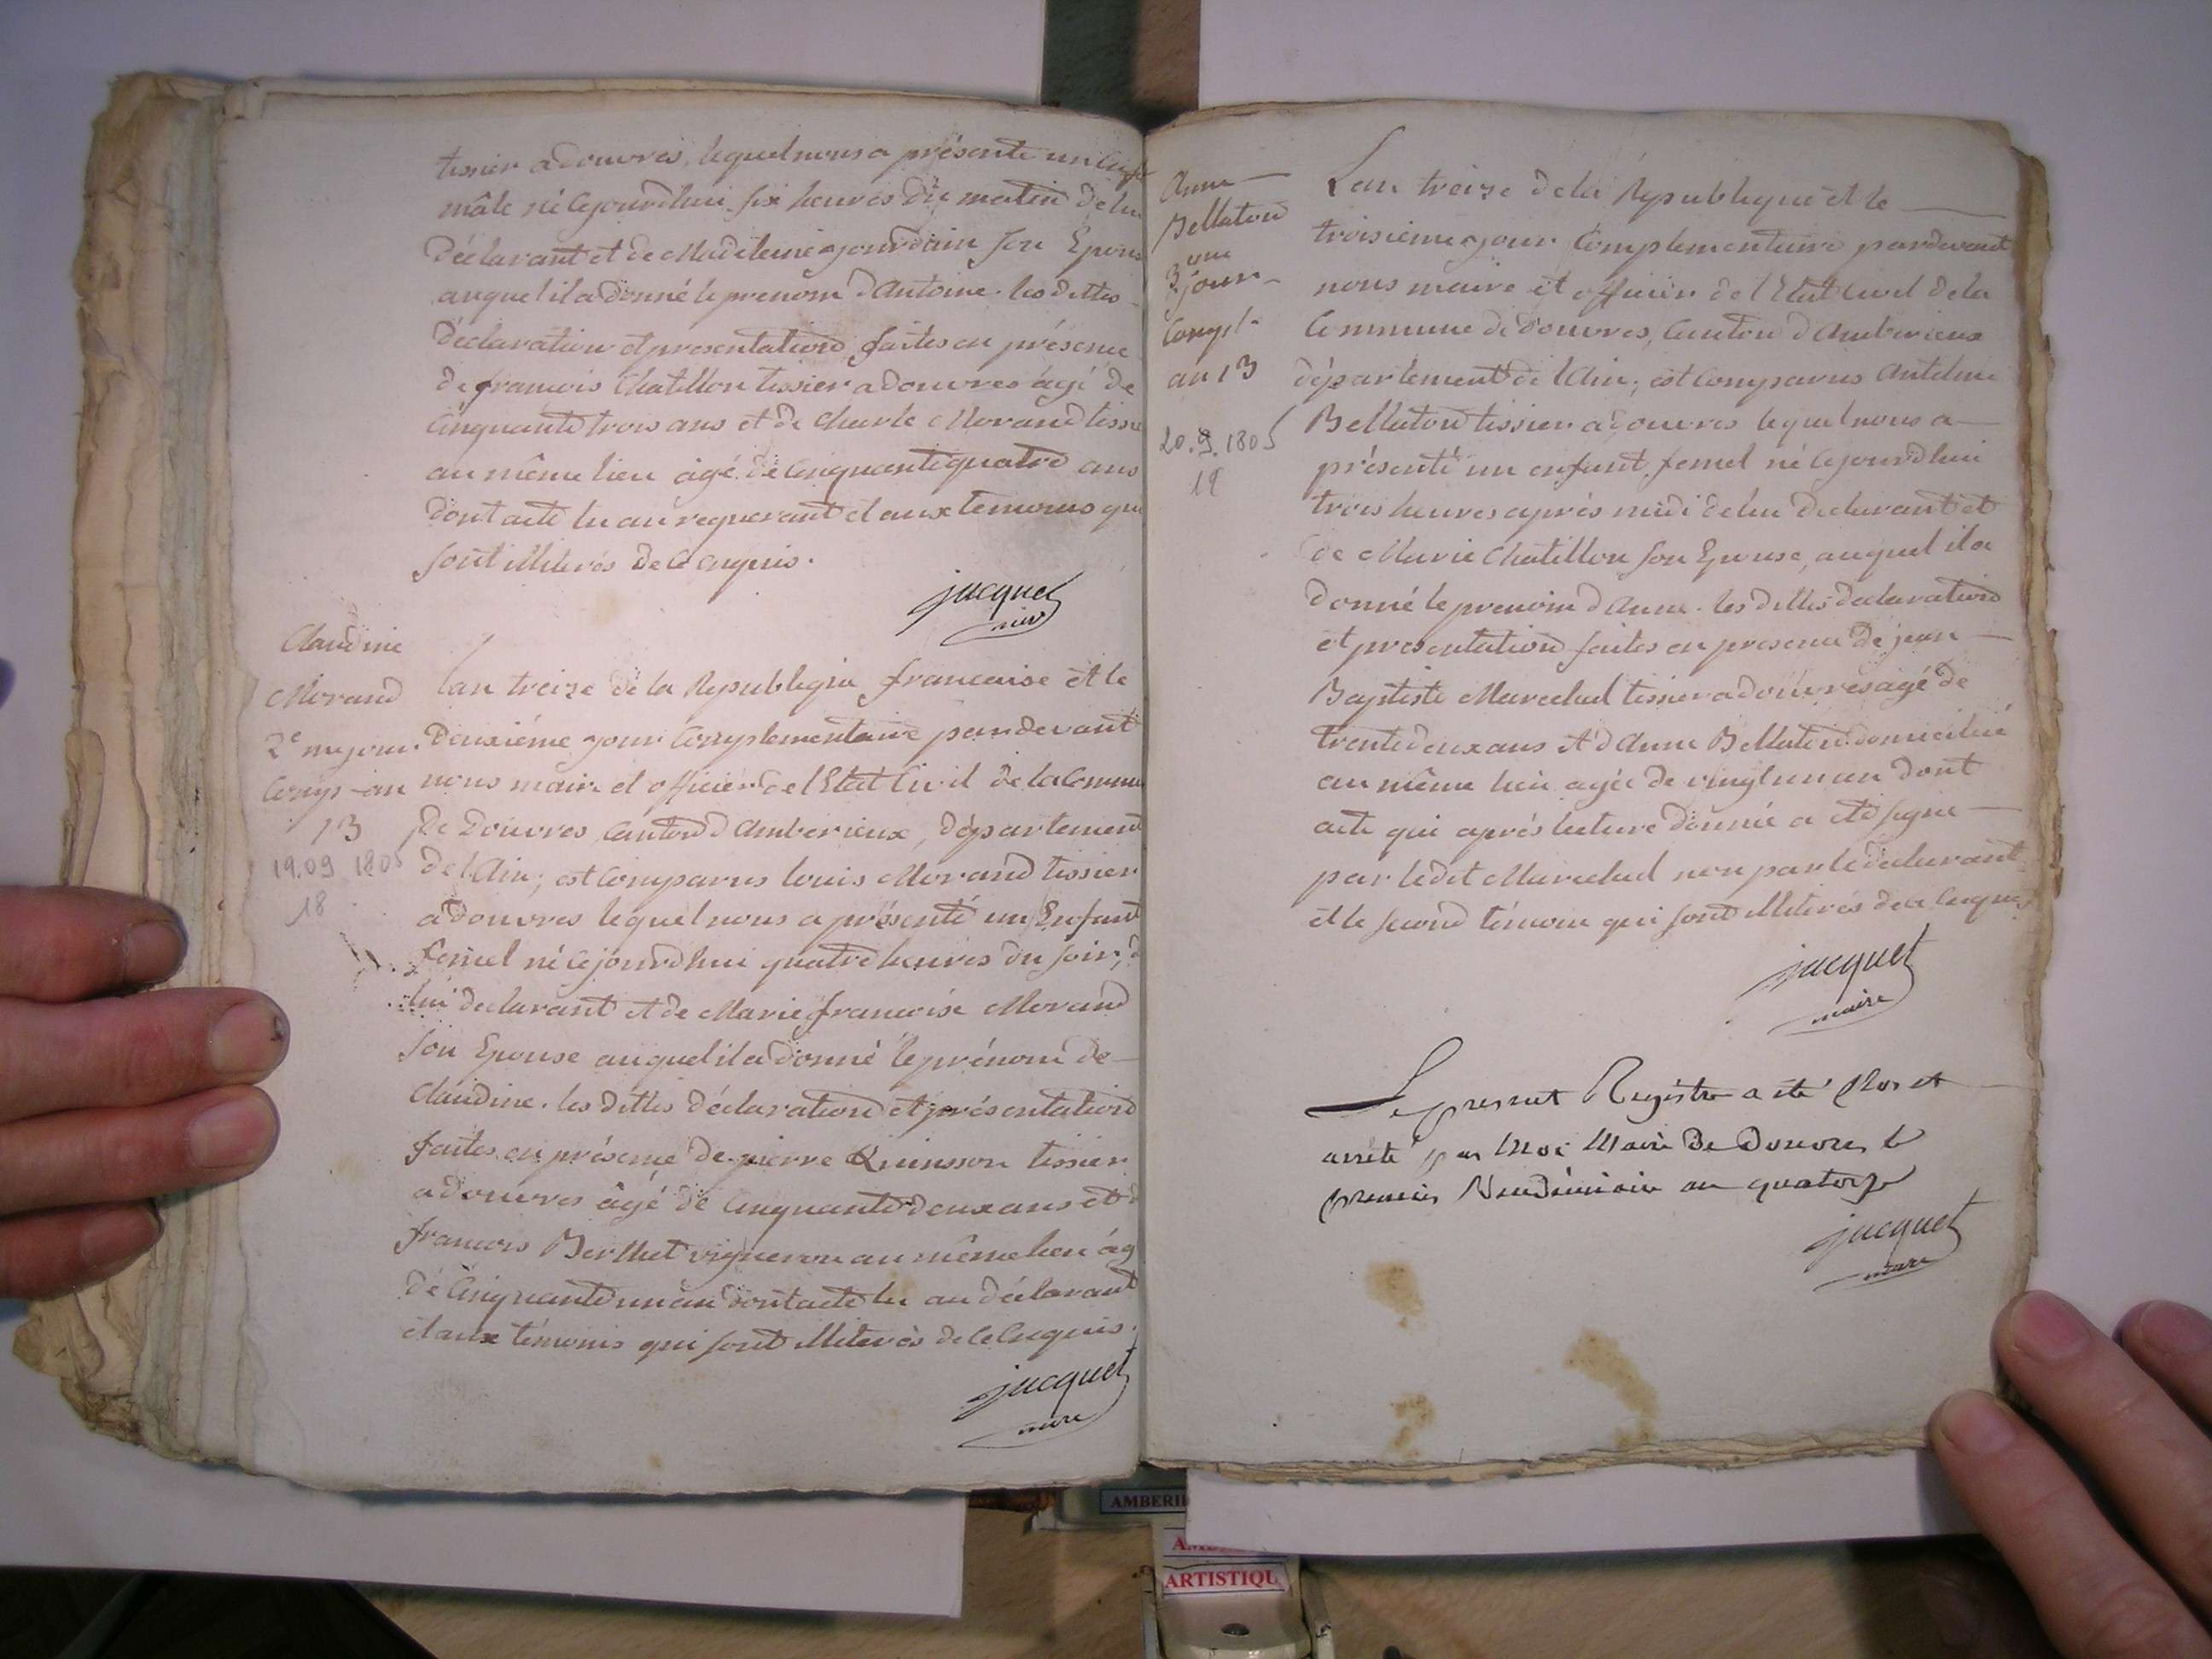 tissier a douvres, lequel nous a présenté un
mâle né cejourdhui six heures du matin de lui
déclarant et de Madeleine jourdain son Epous
auquel il a donné le prenom d'Antoine. les dittes
déclaration et presentation faites en présence
de francois Chatillon tissier a douvres âgé de
cinquante trois ans et de Charle Morand tissie
au même lieu âgé de cinquante quatre ans
dont acte lu au requerant et aux temoins qui
sont illiterés de ce enquis.
jacquet
maire
Claudine
Morand
2e me jour
Comp - an
13
19.09 1805
18
lan treize de la Republique francaise et le
deuxiéme jour Complementaire pardevant
nous maire et officier de l'Etat Civil de la Commu
de Douvres canton d'Amberieux, département
de l'Ain; est comparus louis Morand tissier
a douvres lequel nous a présenté un Enfant
femel né cejourdhui quatre heures du soir, d
lui declarant et de Marie francoise Morand
son Epouse auquel il a donné le prénom de
Claudine. les dittes déclaration et présentation
faites en présence de pierre Quinsson tissier
a douvres âgé de cinquante deux ans et d
francois Berthet vigneron au même lieu âg
dé cinquante un an dont acte lu au déclarant
et aux témoins qui sont illiterés de ce Enquis.
jacquet
maire
Anne
Bellaton
3 eme
jour
Compl.
an 13
20.9.1805
19
Lan treize de la Republique et le
troisieme jour Complementaire pardevant
nous maire et officier de l'Etat civil de la
Commune de Douvres, Canton d'Amberieux
département de l'Ain; est Comparus Antelme
Bellaton tissier a douvres lequel nous a
présenté un enfant femel né cejourdhui
trois heures après midi de lui declarant et
de Marie Chatillon son Epouse, auquel il a
donné le prenom d'Anne. les dittes declaration
et presentation faites en presence de jean
Baptiste Marechal tissier a douvres agé de
trente deux ans et d'Anne Bellaton domicilié
au même lieu agée de vingt un an dont
acte qui aprés lecture donnée a eté signe
par ledit Marechal non par le declarant
et le second témoin qui sont illiterés de ce enquis
jacquet
maire
Le present Registre a été Clos et
arrêté par Moi Maire De Douvres le
premier Vendémiaire an quatorze
jacquet
maire
AMBERI
ARTISTIQU